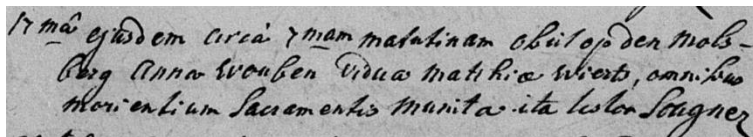 17mâ ejusdem circà 7mam matutinam obiit op den mols-
berg Anna Wouben Vidua Mathiæ Wierts, omnibus
morientium Sacramentis munita ita testor Sougnez